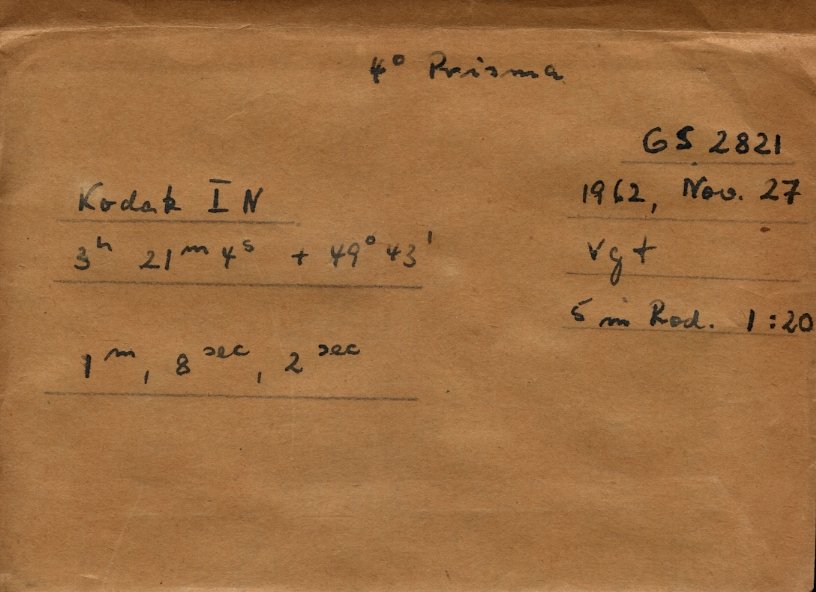 4° Prisma
GS 2821
Kodak I N
1962, Nov. 27
3ʰ 21ᵐ 4ˢ + 49° 43'
Vgt
5 m Rod. 1:20
1ᵐ, 8ˢᵉᶜ, 2ˢᵉᶜ